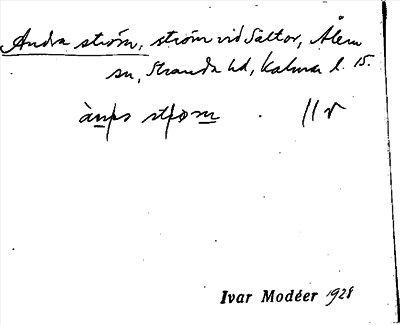 Andra ström, ström vid Saltor, Ålem
sn, Stranda hd, Kalmar l. 15.
Ivar Modéer 1928